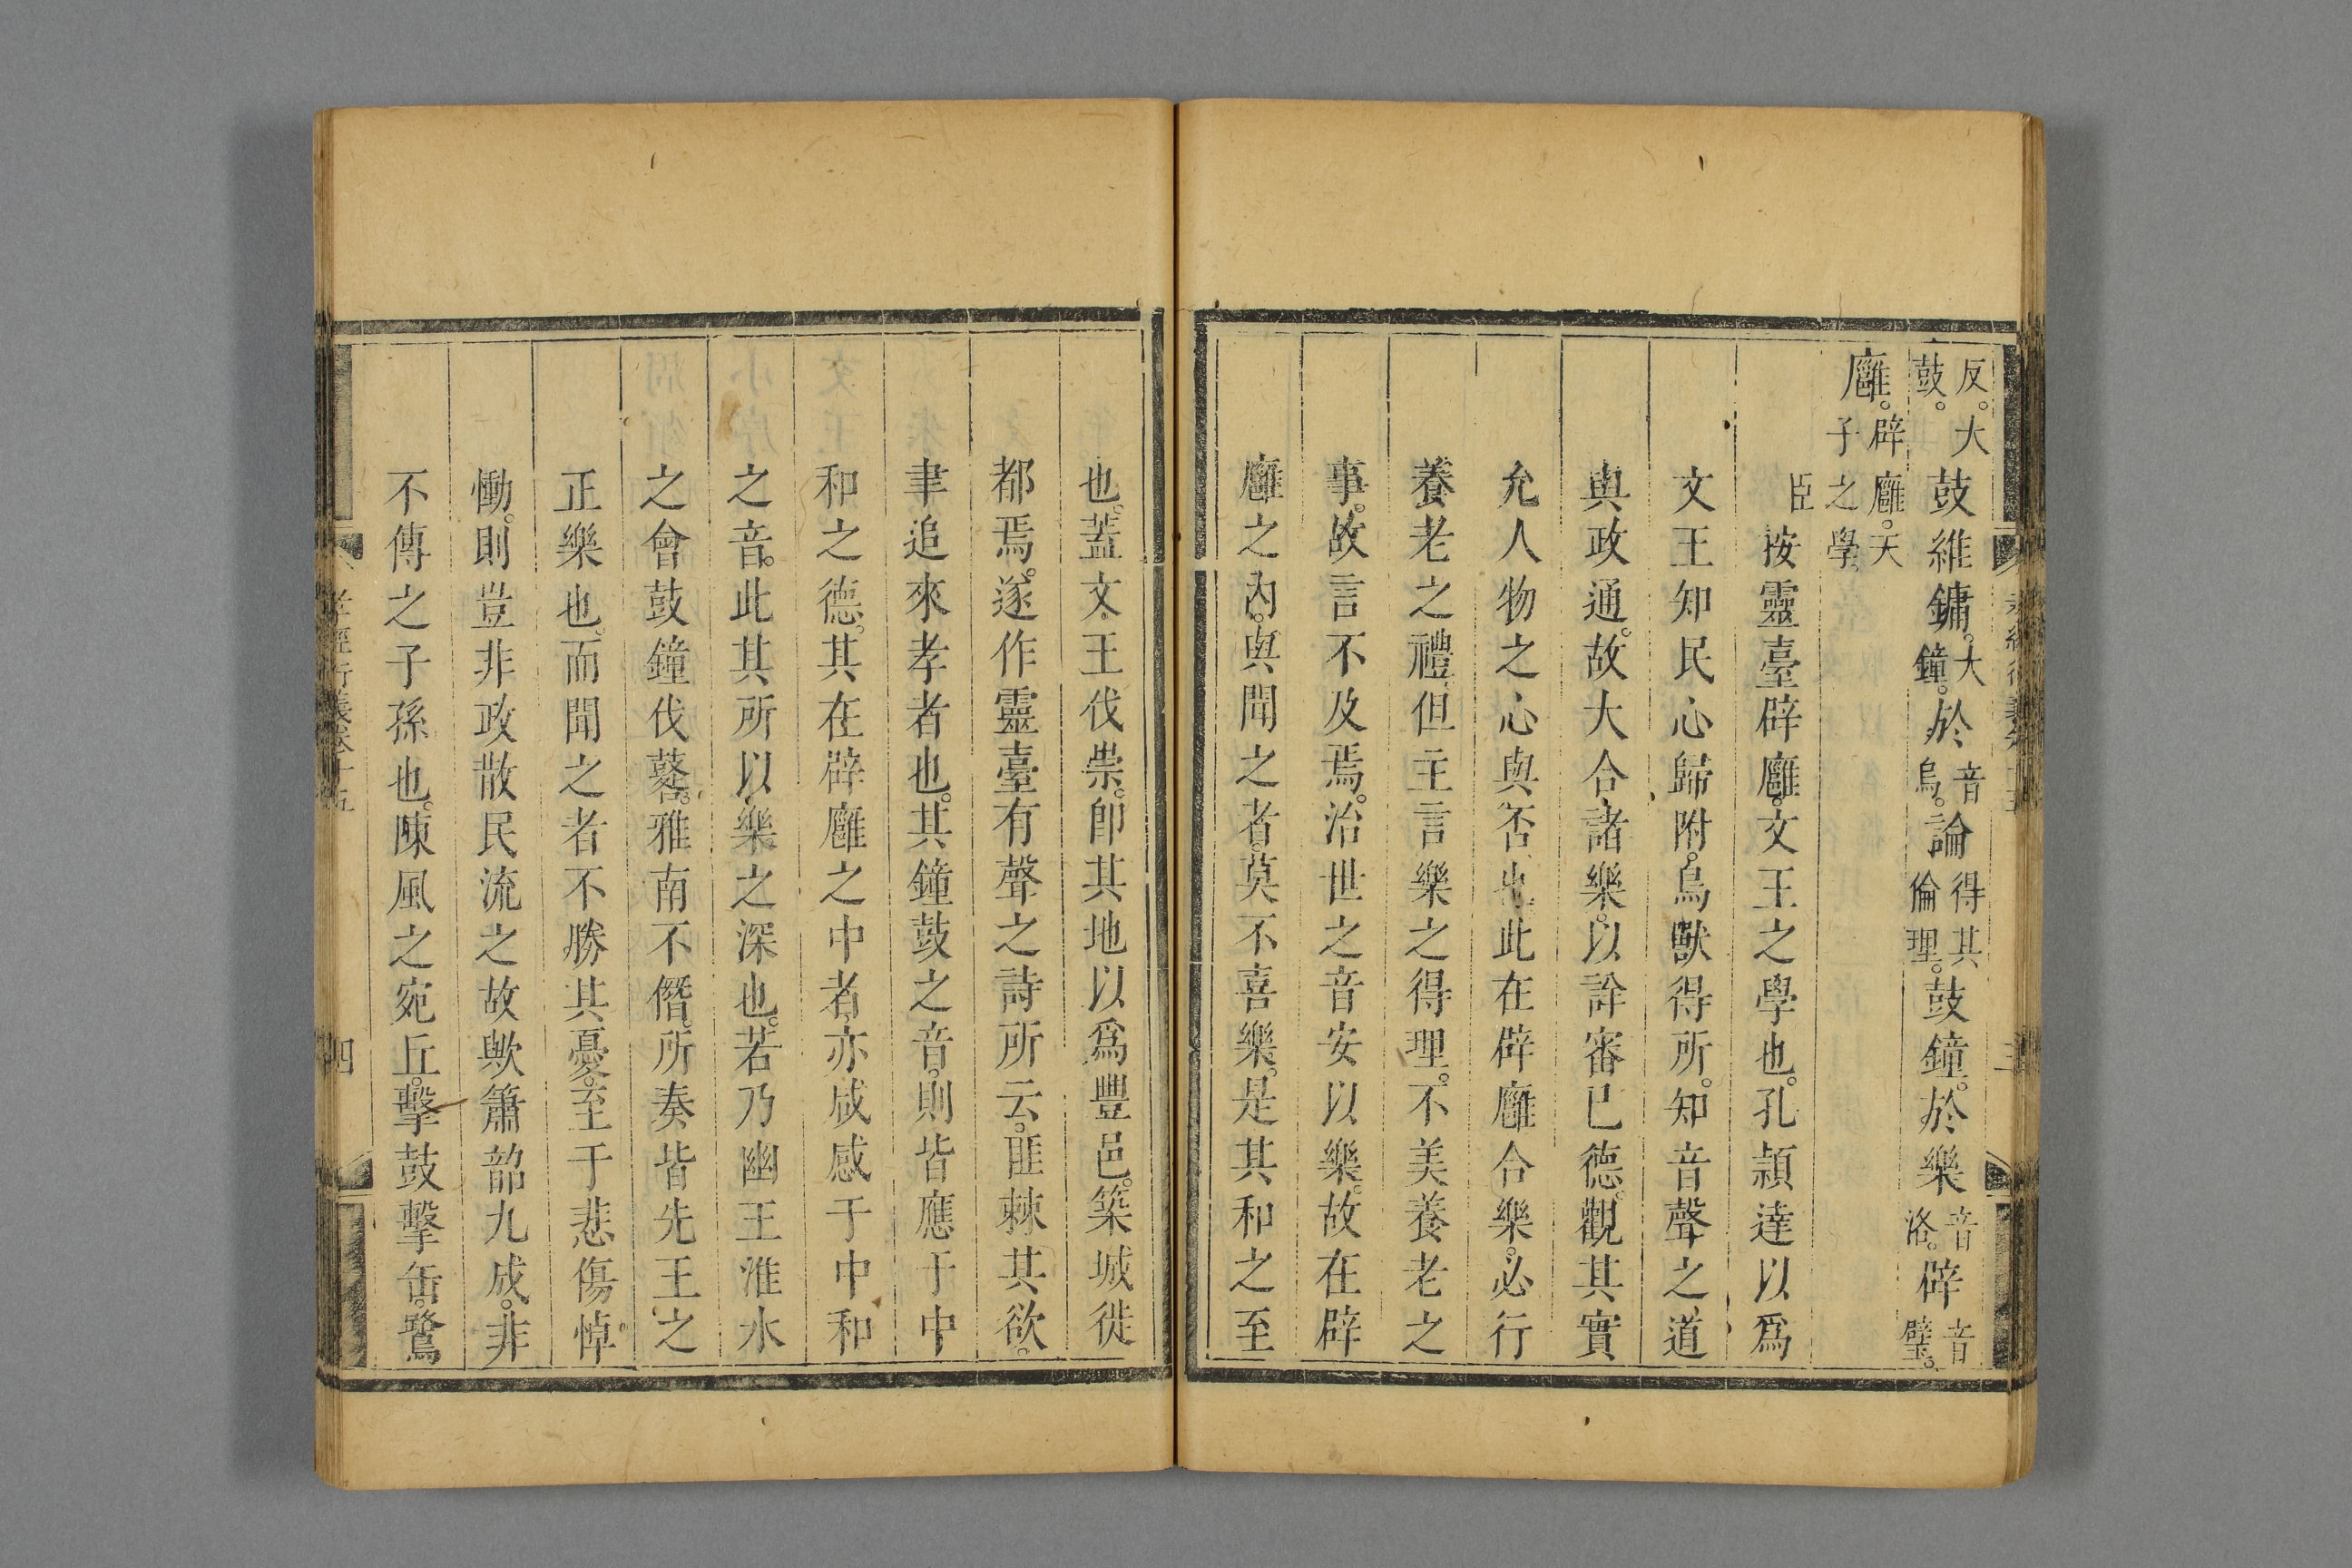 反。大鼓。鼓維鏞。大鐘。於音烏。論得其倫理。鼓鐘。於樂音洛。辟音璧。
廱。辟廱。天子之學。
臣按靈臺辟廱。文王之學也。孔頴達以爲
文王知民心歸附。鳥獸得所。知音聲之道
與政通。故大合諸樂。以詮審已德。觀其實
允人物之心與否也。此在辟廱合樂。必行
養老之禮。但主言樂之得理。不美養老之
事。故言不及焉。治世之音安以樂。故在辟
廱之內。與聞之者。莫不喜樂。是其和之至
也。蓋文王伐崇。卽其地以爲豐邑。築城徙
都焉。遂作靈臺有聲之詩所云。匪棘其欲。
聿追來孝者也。其鐘鼓之音。則皆應于中
和之德。其在辟廱之中者。亦咸感于中和
之音。此其所以樂之深也。若乃幽王淮水
之會鼓鐘伐鼛。雅南不僭。所奏皆先王之
正樂也。而聞之者不勝其憂。至于悲傷悼
慟。則豈非政散民流之故歟。簫韶九成。非
不傳之子孫也。陳風之宛丘。擊鼓擊缶。鷺
孝經衍義卷十五
四